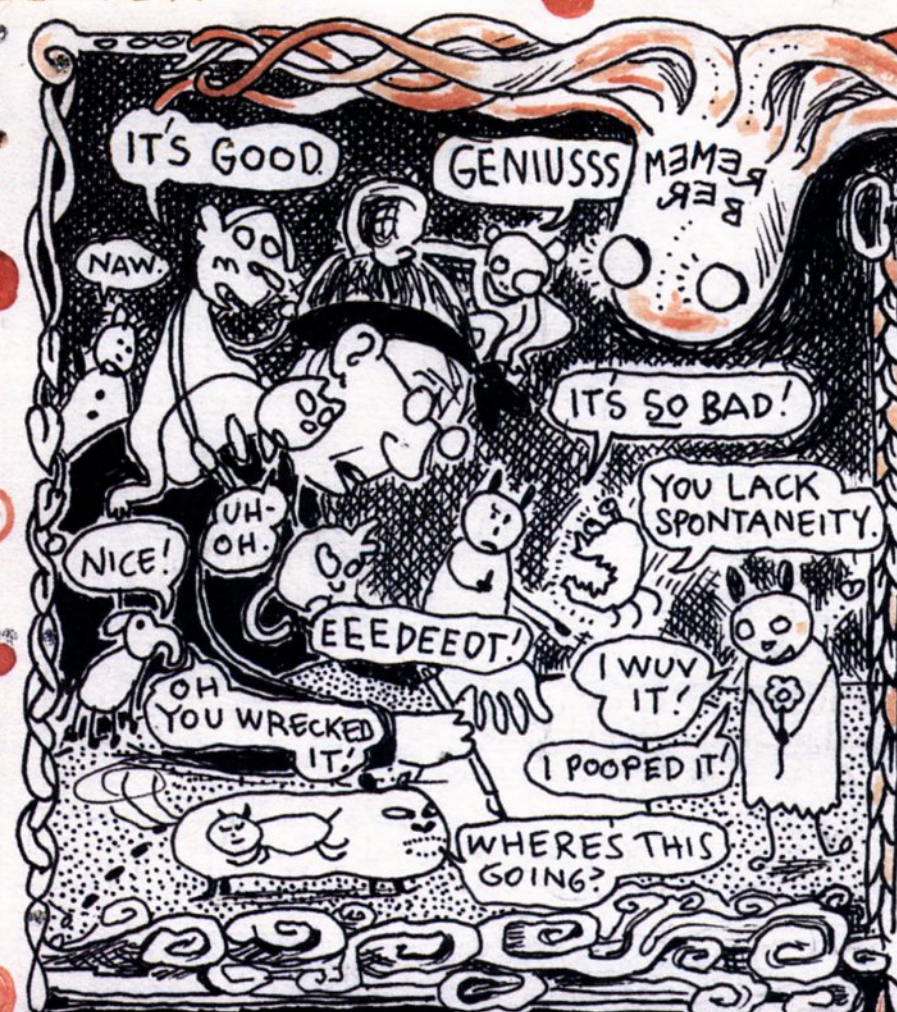 IT'S GOOD.
GENIUSSS
REMEM
BER
NAW.
IT'S SO BAD!
YOU LACK
SPONTANEITY.
UH-
OH.
NICE!
EEEDEEOT!
I WUV
IT!
OH
YOU WRECKED
IT!
I POOPED IT!
WHERE'S THIS
GOING?